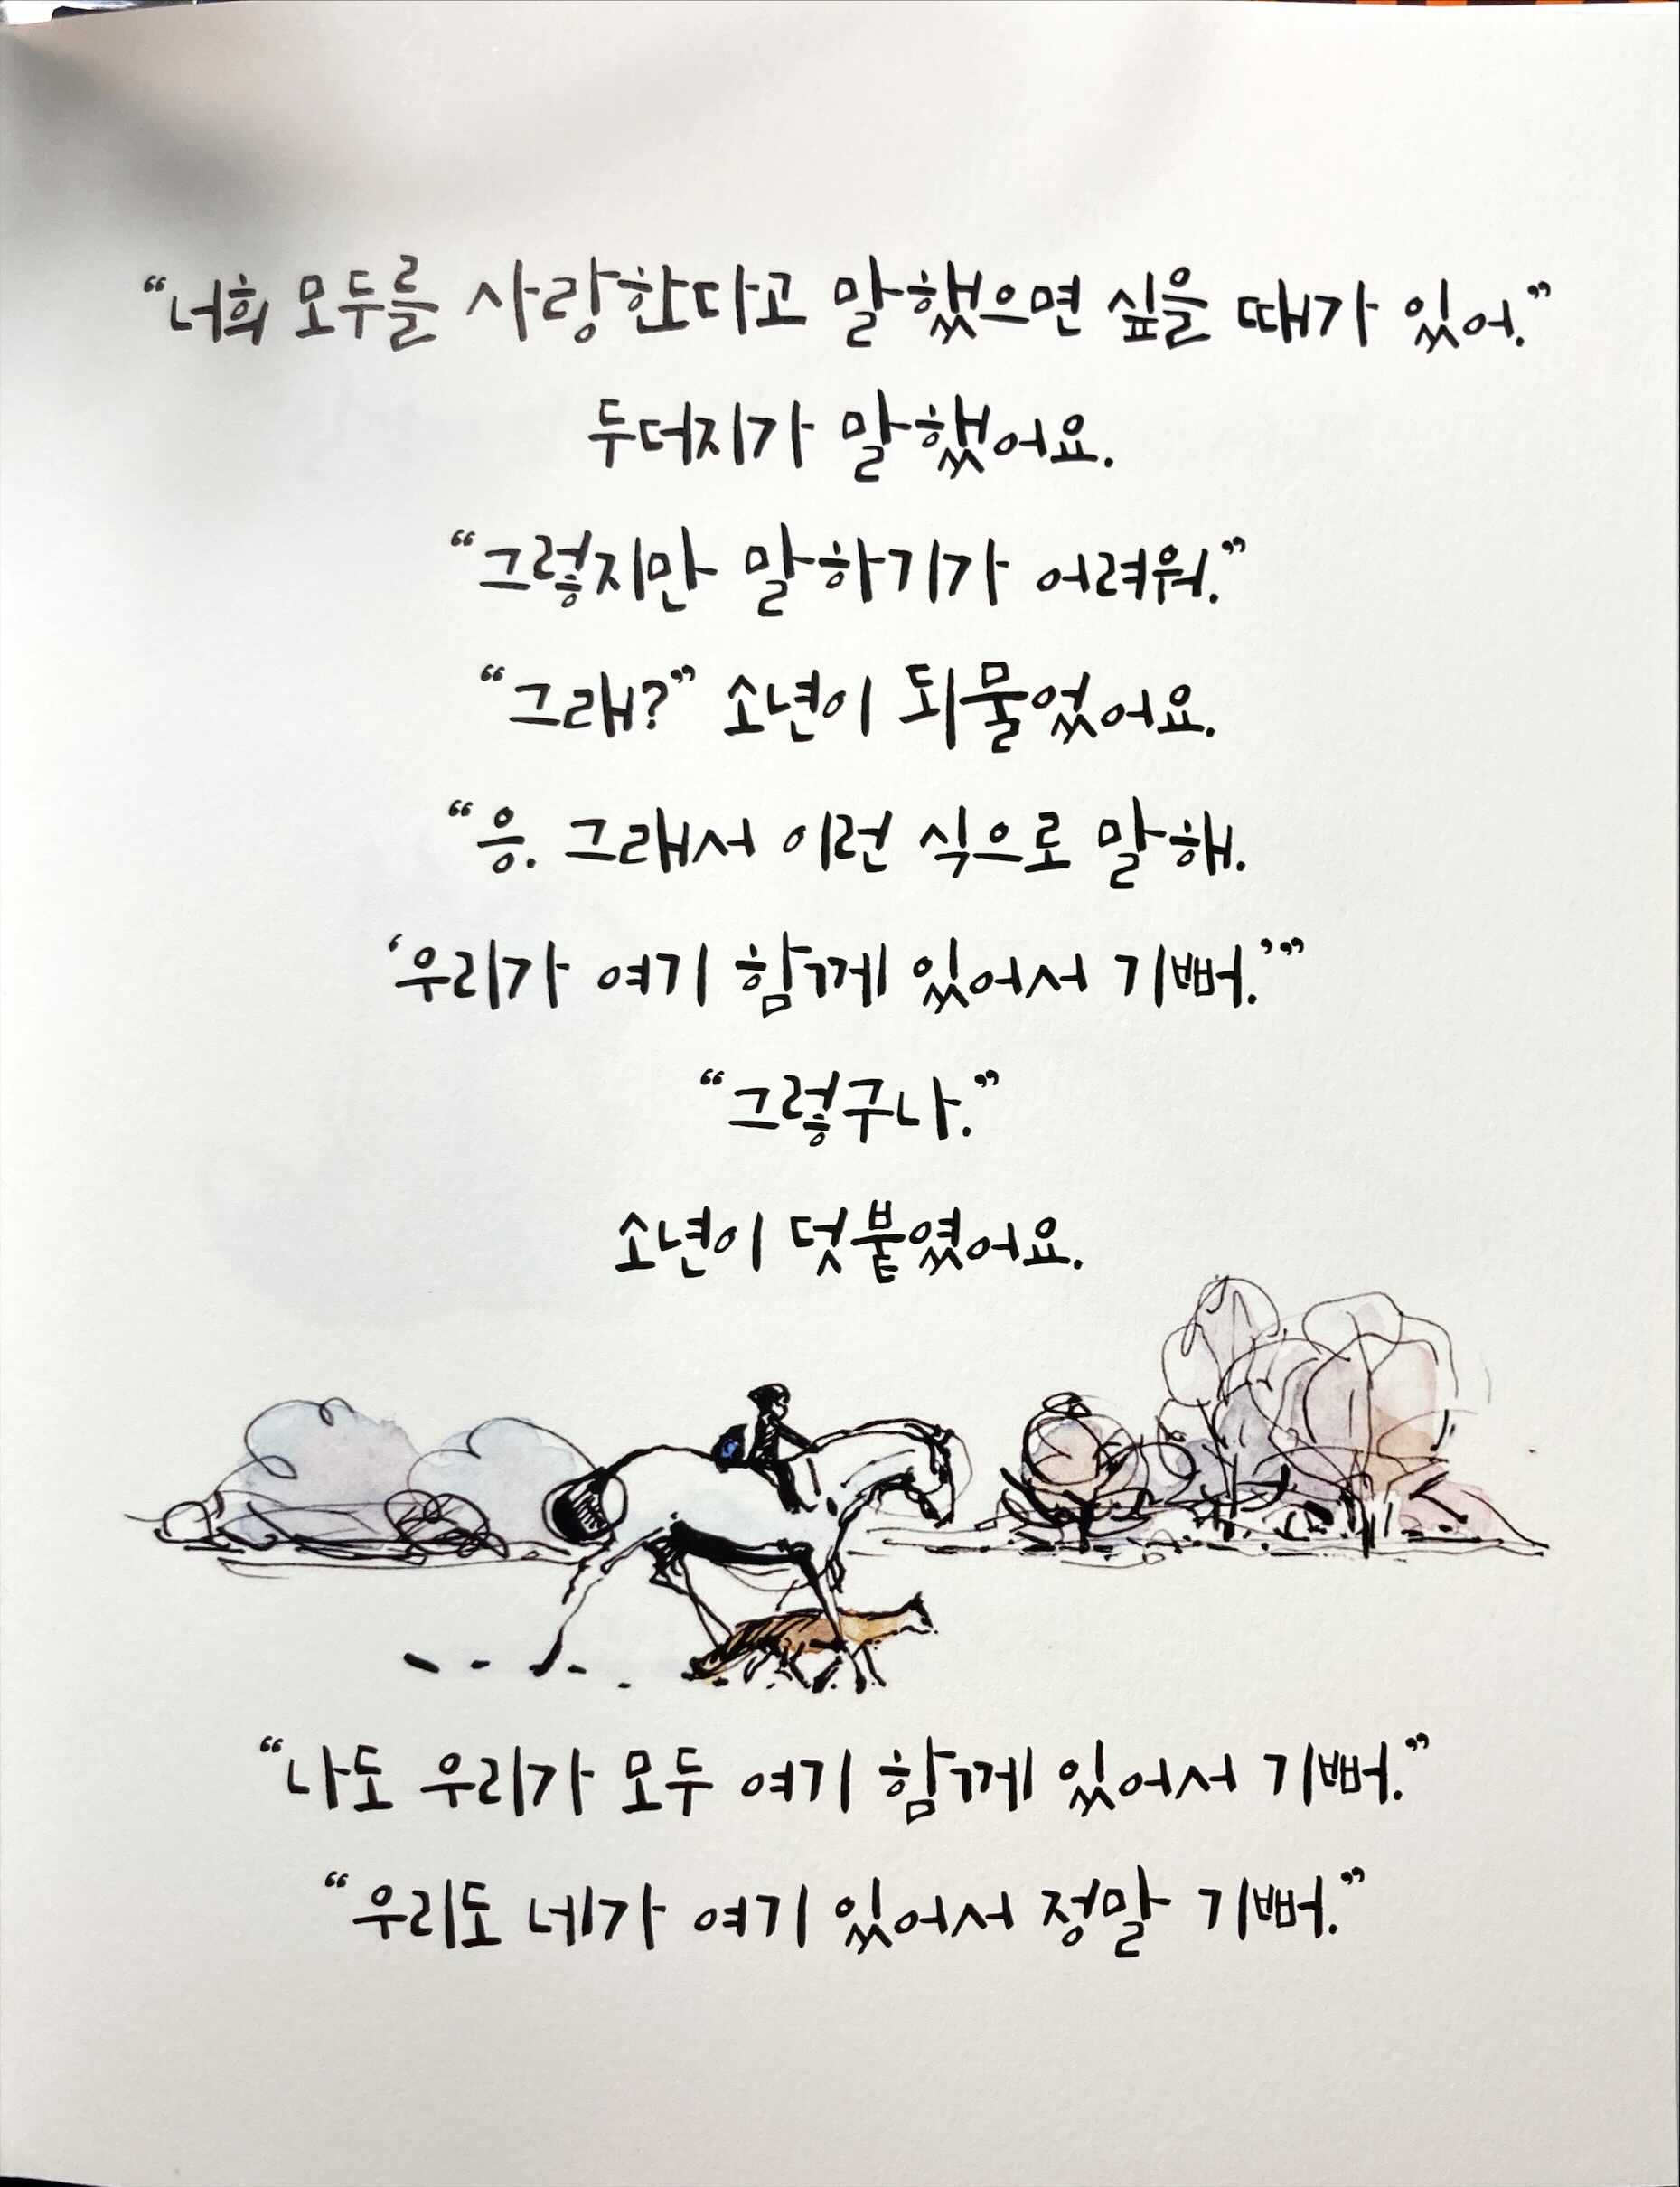 “너희 모두를 사랑한다고 말했으면 싶을 때가 있어.”
두더지가 말했어요.
“그렇지만 말하기가 어려워.”
“그래?” 소년이 되물었어요.
“응. 그래서 이런 식으로 말해.
‘우리가 여기 함께 있어서 기뻐.’”
“그렇구나.”
소년이 덧붙였어요.
“나도 우리가 모두 여기 함께 있어서 기뻐.”
“우리도 네가 여기 있어서 정말 기뻐.”